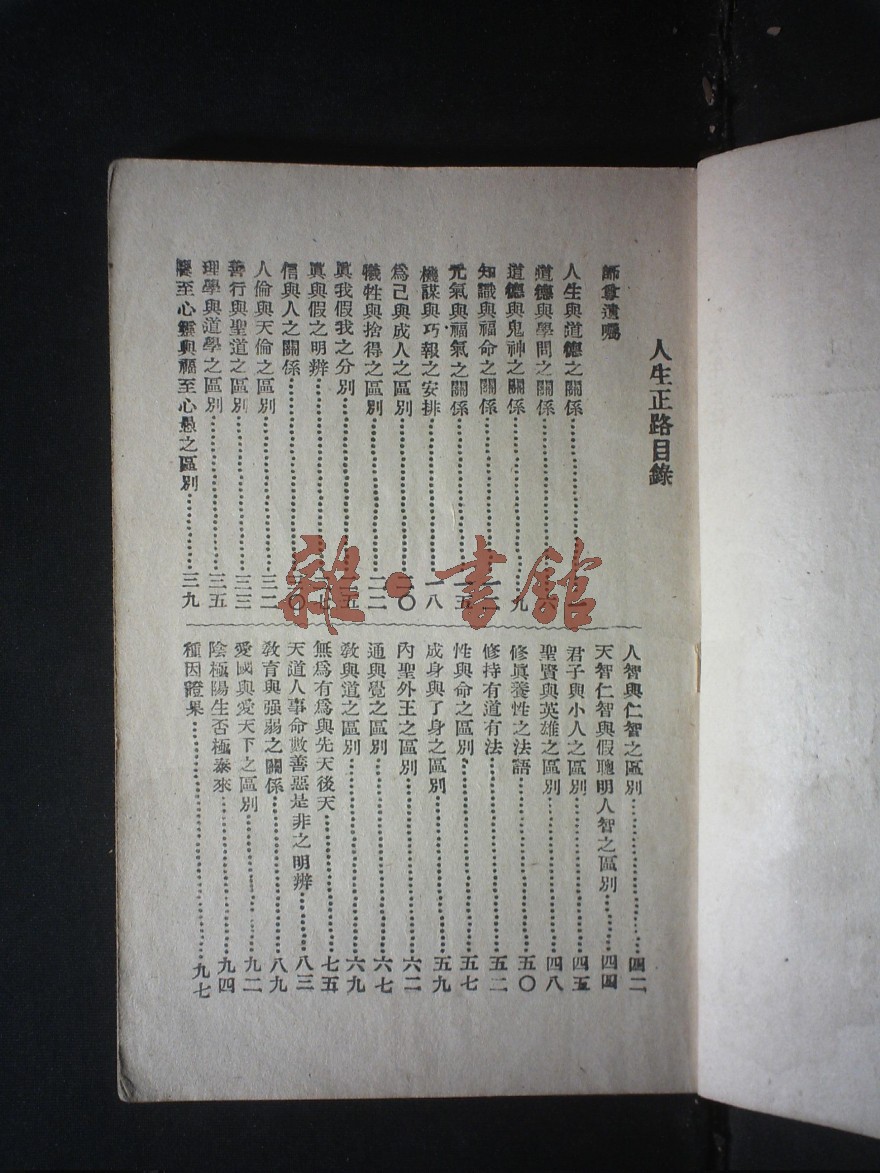 人生正路目錄
師尊遺囑
人生與道德之關係
道德與學問之關係
道德與鬼神之關係……九
知識與福命之關係……一二
元氣與福氣之關係……一五
機謀與巧報之安排……一八
為己與成人之區別……二〇
犧牲與捨得之區別……二二
真我假我之分別……二五
真與假之明辨……二七
信與人之關係……三〇
人倫與天倫之區別……三二
善行與聖道之區別……三三
理學與道學之區別……三五
至心靈與福至心愚之區別……三九
人智與仁智之區別……四二
天智仁智與假聰明人智之區別……四四
君子與小人之區別……四五
聖賢與英雄之區別……四八
修真養性之法語……五〇
修持有道有法……五二
性與命之區別……五七
成身與了身之區別……五九
內聖外王之區別……六二
通與覺之區別……六七
教與道之區別……六九
無為有為與先天後天……七五
天道人事命數善惡是非之明辨……八三
教育與强弱之關係……八九
愛國與愛天下之區別……九二
陰極陽生否極泰來……九四
種因證果……九七
雜·書館